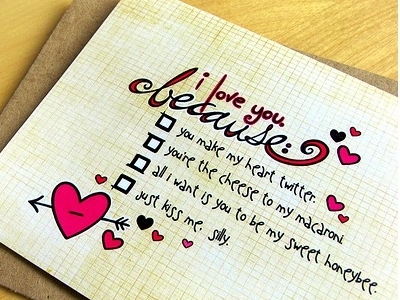 i love you,
because:
you make my heart twitter.
you're the cheese to my macaroni.
all i want is you to be my sweet honeybee.
just kiss me, silly.